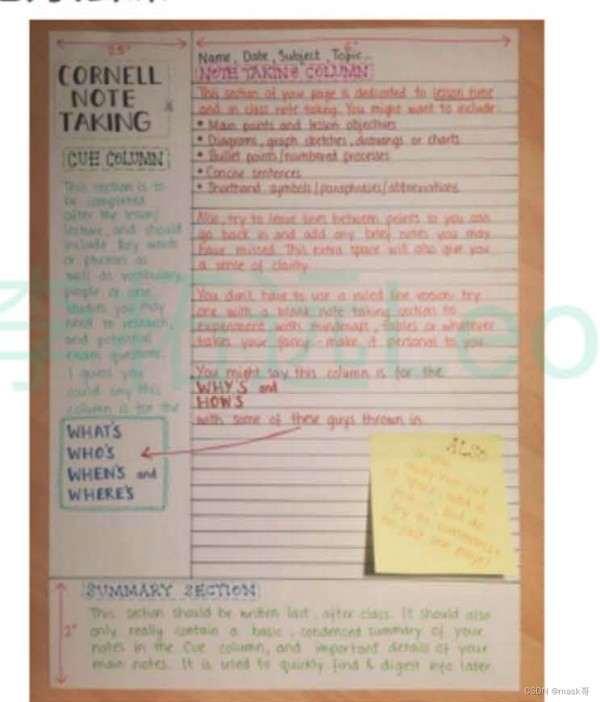 2.5"
6"
CORNELL
NOTE
TAKING
CUE COLUMN
This section is to
be completed
after the lesson/
lecture, and should
include key words
or phrases as
well as vocabulary,
people or
studies you may
need to research,
and potential
exam questions.
I guess you
could say this
column is for the
WHAT'S
WHO'S
WHEN'S and
WHERE'S
Name, Date, Subject, Topic...
NOTE TAKING COLUMN
This section of your page is dedicated to lesson time
and in class note taking. You might want to include:
• Main points and lesson objectives
• Diagrams, graph sketches, drawings or charts
• Bullet points/numbered processes
• Concise sentences
• Shorthand symbols/paraphrases/abbreviations
Also, try to leave lines between points so you can
go back in and add any brief notes you may
have missed. This extra space will also give you
a sense of clarity.
You don't have to use a ruled line version: try
one with a blank note taking section to
experiment with mindmaps, tables or whatever
takes your fancy - make it personal to you.
You might say this column is for the
WHY'S and
HOW'S
with some of these guys thrown in.
ALSO
2"
SUMMARY SECTION
This section should be written last, after class. It should also
only really contain a basic, condensed summary of your
notes in the Cue column, and important details of your
main notes. It is used to quickly find & digest info later.
CSDN @mask哥